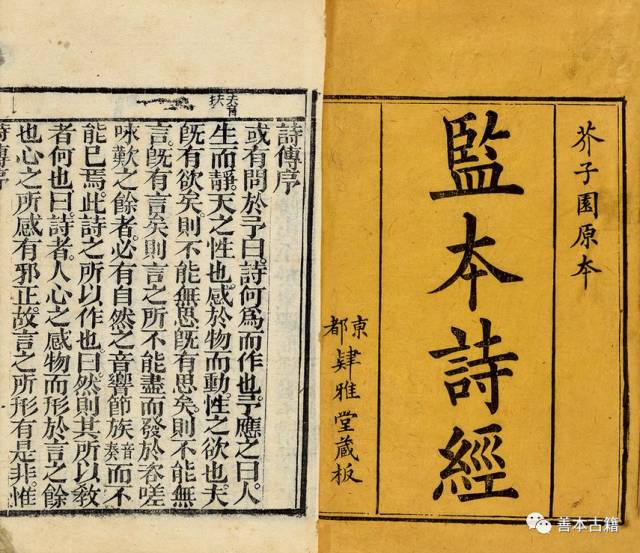 芥子園原本
監本詩經
東都肄雅堂藏板
夫音扶
詩傳序
或有問於予曰。詩何為而作也。予應之曰。人
生而靜。天之性也。感於物而動。性之欲也。夫
既有欲矣。則不能無思。既有思矣。則不能無
言。既有言矣。則言之所不能盡而發於咨嗟
咏歎之餘者。必有自然之音響節族音奏而不
能已焉。此詩之所以作也。曰。然則其所以教
者何也。曰。詩者。人心之感物而形於言之餘
也。心之所感有邪正。故言之所形有是非。惟
詩傳序
善本古籍